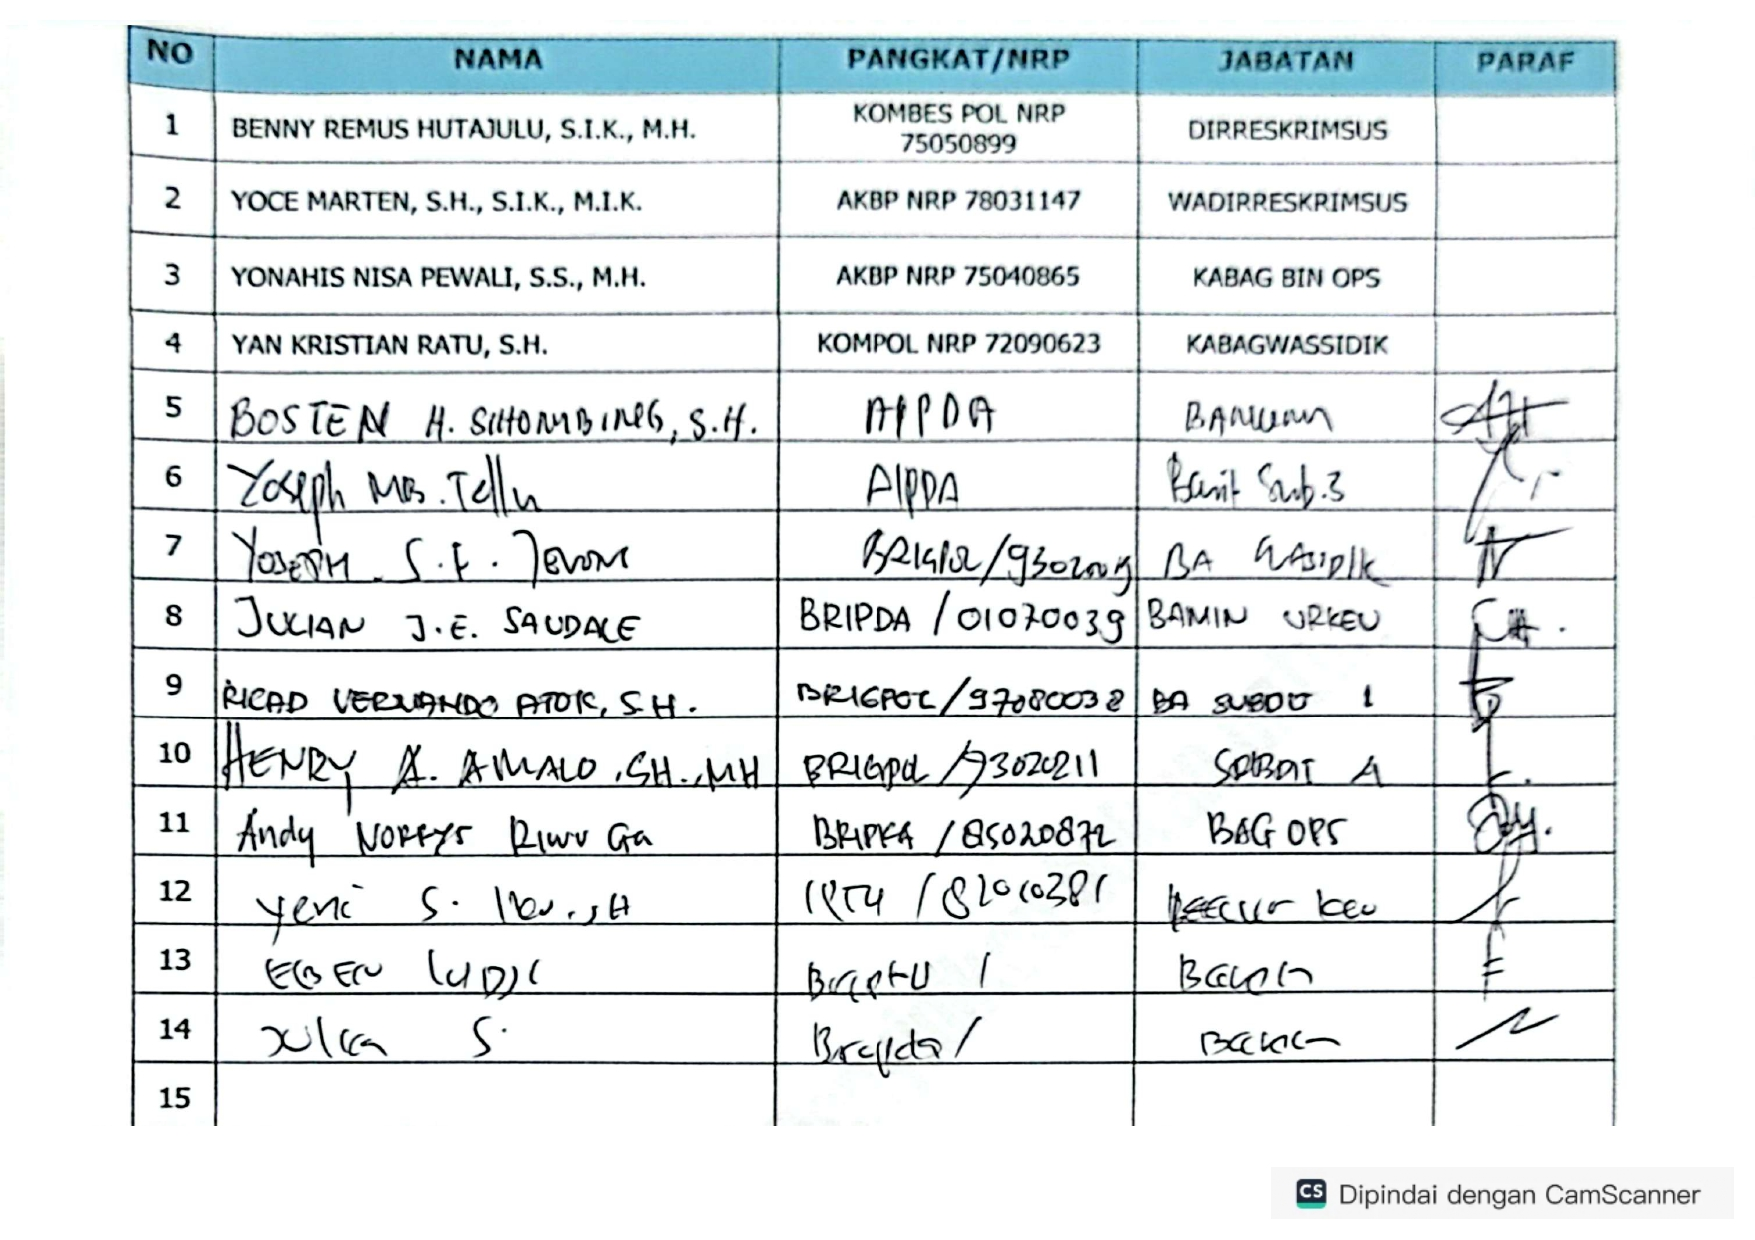 NO NAMA PANGKAT/NRP JABATAN PARAF
1 BENNY REMUS HUTAJULU, S.I.K., M.H. KOMBES POL NRP 75050899 DIRRESKRIMSUS
2 YOCE MARTEN, S.H., S.I.K., M.I.K. AKBP NRP 78031147 WADIRRESKRIMSUS
3 YONAHIS NISA PEWALI, S.S., M.H. AKBP NRP 75040865 KABAG BIN OPS
4 YAN KRISTIAN RATU, S.H. KOMPOL NRP 72090623 KABAGWASSIDIK
5 BOSTEN H. SIHOMBING, S.H. AIPDA
6 Yoseph MB. Tellu AIPDA Banit Sub.3
7 YOSEPH S.F. BRIGPOL BA WASIDIK
8 JULIAN J.E. SAUDALE BRIPDA / 01070039 BAMIN URKEU
9 RICAD VERNANDO ATOK, S.H. BRIGPOL / 97080038 BA SUBDIT 1
10 HENRY A. AMALO, SH., MH BRIGPOL / 93020211 SUBDIT 4
11 Andy NORFYS RIWU Ga BRIPKA / 85020872 BAG OPS
12 Yeni S. IPTU
13 EBEN Briptu /
14 S. /
15
CS Dipindai dengan CamScanner